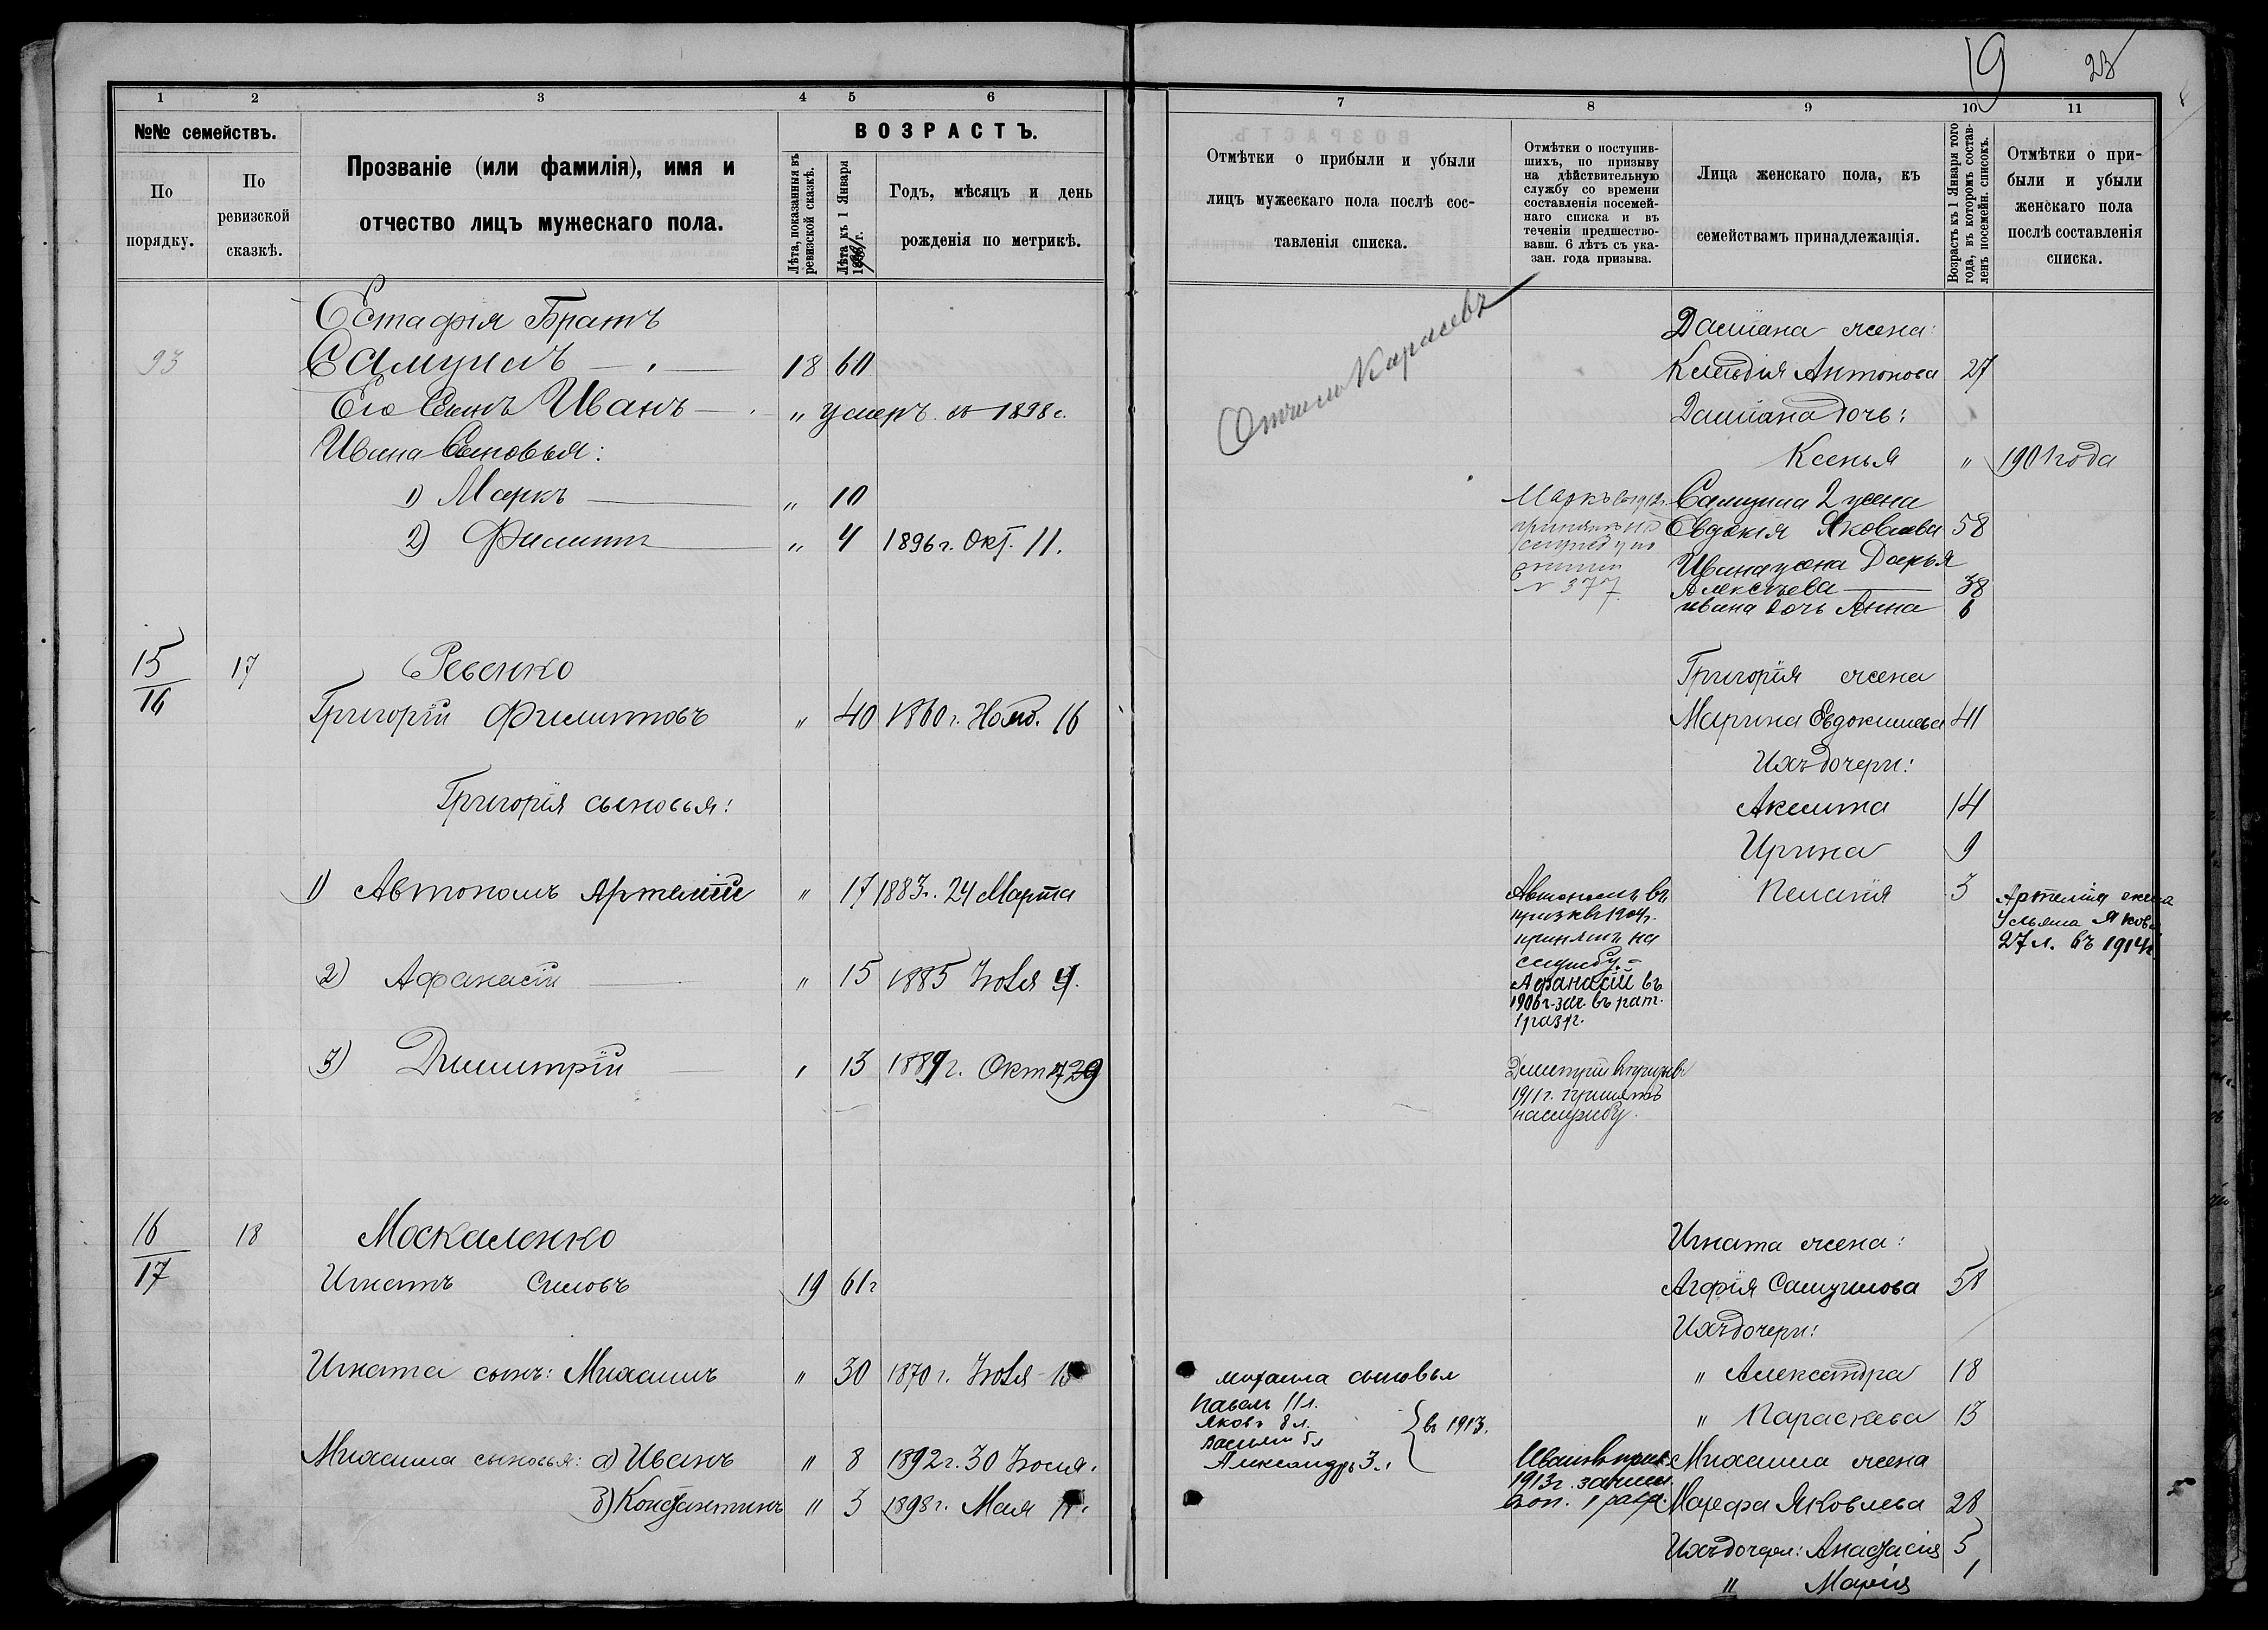 19 23
1 2 3 4 5 6
№№ семействъ.
По порядку.
По ревизской сказкѣ.
Прозваніе (или фамилія), имя и
отчество лицъ мужескаго пола.
ВОЗРАСТЪ.
Лѣта, показанныя въ ревизской сказкѣ.
Лѣта къ 1 Января
Годъ, мѣсяцъ и день
рожденія по метрикѣ.
Естафія Братъ
93 Самуилъ — 18 60
Его Сынъ Иванъ — „ умеръ въ 1898 г.
Ивана Сыновья:
1) Маркъ — „ 10
2) Филиппъ — „ 4 1896 г. Окт. 11.
15/16 17 Ревенко
Григорій Филиповъ „ 40 1860 г. Нояб. 16
Григорія сыновья:
1) Автономъ Артемій „ 17 1883 г. 24 Марта
2) Афанасій — „ 15 1885 Іюля 4.
3) Димитрій — „ 13 1889 г. Окт 29
16/17 18 Москаленко
Игнатъ Силовъ 19 61 г
Игната сынъ: Михаилъ „ 30 1870 г. Іюля
Михаила сыновья: а) Иванъ „ 8 1892 г. 30 Іюля.
б) Константинъ „ 3 1898 г. Мая 11.
7 8 9 10 11
Отмѣтки о прибыли и убыли
лицъ мужескаго пола послѣ сос-
тавленія списка.
Отмѣтки о поступив-
шихъ, по призыву
на дѣйствительную
службу со времени
составленія посемей-
наго списка и въ
теченіи предшество-
вавш. 6 лѣтъ съ ука-
зан. года призыва.
Лица женскаго пола, къ
семействамъ принадлежащія.
Возрастъ къ 1 Января того
года, въ которомъ состав-
ленъ посемейн. списокъ.
Отмѣтки о при-
были и убыли
женскаго пола
послѣ составленія
списка.
Карасевъ
Даміана жена:
Антонова 27
Даміана дочь:
Ксенья „ 1901 года
Маркъ въ 1912 г.
принятъ на
службу по
N 377
Самуила 2 жена
Евдокія Яковлева 58
Ивана жена Дарья
Алексѣева — 38
ивана дочь Анна 6
Григорія жена
Марина Евдокимова 41
Ихъ дочери:
Акилина 14
Ирина 9
Пелагія 3
Автономъ въ
призывъ 1904 г.
принятъ на
службу.
Афанасій въ
1906 г. зач. въ рат.
1 разр.
Артемія жена
Ульяна Яков
27 л. въ 1914 г.
Дмитрій въ призывъ
1911 г. принятъ
на службу.
Игната жена:
Агафія Самуилова 58
Ихъ дочери:
„ Александра 18
„ Параскева 13
михаила сыновья
Павелъ 11 л.
Яковъ 8 л.
Василій 5 л
Александръ 3 л.
въ 1913.
Иванъ въ приз.
1913 г. зачисл.
опол. 1 разр.
Михаила жена
Марфа Яковлева 28
Ихъ дочери: Анастасія 5
„ Марія 1